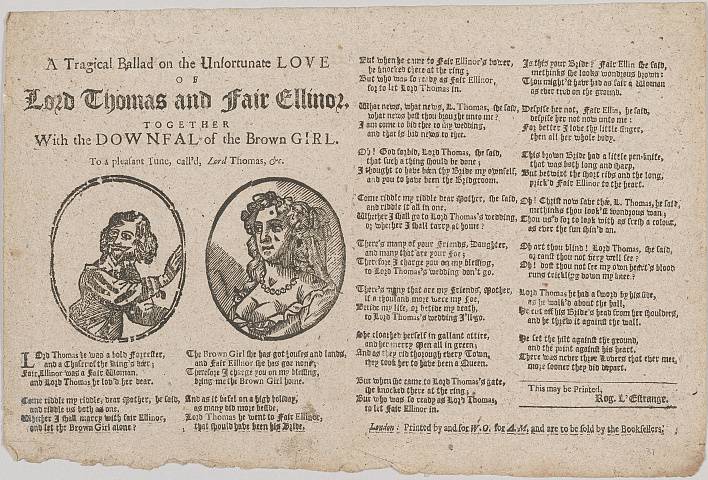 A Tragical Ballad on the Unfortunate LOVE
OF
Lord Thomas and Fair Ellinor,
TOGETHER
With the DOWNFAL of the Brown GIRL.
To a pleasant Tune, call'd, Lord Thomas, &c.
LOrd Thomas he was a bold Forrester,
and a Chaser of the King's Deer;
Fair Ellinor was a Fair Woman,
and Lord Thomas he lov'd her dear.
Come riddle my riddle, dear Mother, he said,
and riddle us both as one.
Whether I shall marry with fair Ellinor,
and let the Brown Girl alone?
The Brown Girl she has got houses and lands,
and Fair Ellinor she has got none;
Therefore I charge you on my blessing,
bring me the Brown Girl home.
And as it befel on a high holiday,
as many did more beside,
Lord Thomas he went to Fair Ellinor,
that should have been his Bride.
But when he came to Fair Ellinor's bower,
he knocked there at the ring;
But who was so ready as Fair Ellinor,
for to let Lord Thomas in.
What news, what news, L. Thomas, she said,
what news hast thou brought unto me?
I am come to bid thee to my wedding,
and that is bad news to thee.
Oh! God forbid, Lord Thomas, she said,
that such a thing should be done;
I thought to have been thy Bride my own self,
and you to have been the Bridegroom.
Come riddle my riddle dear Mother, she said,
and riddle it all in one,
Whether I shall go to Lord Thomas's wedding,
or whether I shall tarry at home?
There's many of your Friends, Daughter,
and many that are your Foe;
Therefore I charge you on my blessing,
to Lord Thomas's wedding don't go.
There's many that are my Friends, Mother,
if a thousand more were my Foe,
Betide my life, or betide my death,
to Lord Thomas's wedding I'll go.
She cloathed herself in gallant attire,
and her merry Men all in green;
And as they rid thorough every Town,
they took her to have been a Queen.
But when she came to Lord Thomas's gate,
she knocked there at the ring;
But who was so ready as Lord Thomas,
to let Fair Ellinor in.
Is this your Bride? Fair Ellin she said,
methinks she looks wondrous brown:
Thou might'st have had as fair a Woman
as ever trod on the ground.
Despise her not, Fair Ellin, he said,
despise her not now unto me:
For better I love thy little finger,
then all her whole body.
This brown Bride had a little pen-knife,
that was both long and sharp,
But betwixt the short ribs and the long,
prick'd Fair Ellinor to the heart.
Oh! Christ now save thee, L. Thomas, he said,
methinks thou look'st wondrous wan;
Thou us'd for to look with as fresh a colour,
as ever the sun shin'd on.
Oh art thou blind! Lord Thomas, she said,
or canst thou not very well see?
Oh! dost thou not see my own heart's blood
runs trickling down my knee?
Lord Thomas he had a sword by his side,
as he walk'd about the hall,
He cut off his Bride's head from her shoulders,
and he threw it against the wall.
He set the hilt against the ground,
and the point against his heart,
There was never three Lovers that ever met,
more sooner they did depart.
This may be Printed,
Rog. L'Estrange.
London: Printed by and for W.O. for A.M. and are to be sold by the Booksellers.